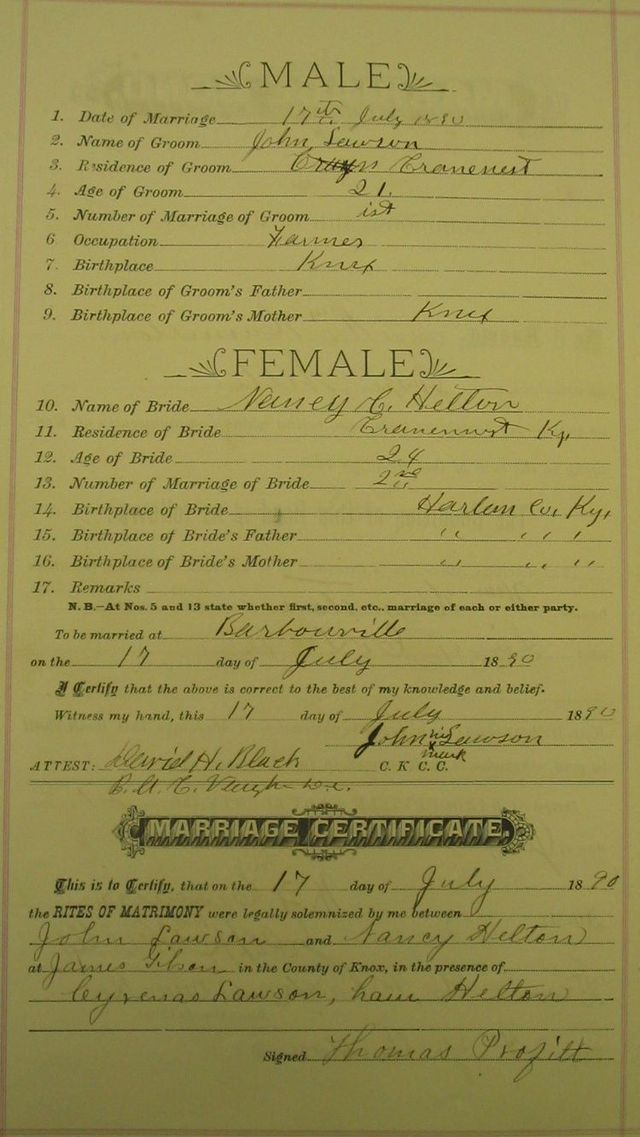 MALE
1. Date of Marriage 17th July 1890
2. Name of Groom John Lawson
3. Residence of Groom Cranenest
4. Age of Groom 21.
5. Number of Marriage of Groom ist
6 Occupation Farmer
7. Birthplace Knox
8. Birthplace of Groom's Father
9. Birthplace of Groom's Mother Knox
FEMALE
10. Name of Bride Nancy C. Helton
11. Residence of Bride Cranenest Ky,
12. Age of Bride 24
13. Number of Marriage of Bride 2nd
14. Birthplace of Bride Harlan Co, Ky,
15. Birthplace of Bride's Father " " "
16. Birthplace of Bride's Mother " " "
17. Remarks
N. B.—At Nos. 5 and 13 state whether first, second, etc., marriage of each or either party.
To be married at Barbourville
on the 17 day of July 1890
I Certify that the above is correct to the best of my knowledge and belief.
Witness my hand, this 17 day of July 1890
John his x mark Lawson
ATTEST: David H. Black C. K. C. C.
MARRIAGE CERTIFICATE.
This is to Certify, that on the 17 day of July 1890
the RITES OF MATRIMONY were legally solemnized by me between
John Lawson and Nancy Helton
at James in the County of Knox, in the presence of
Lawson, Helton
Signed Thomas Profitt